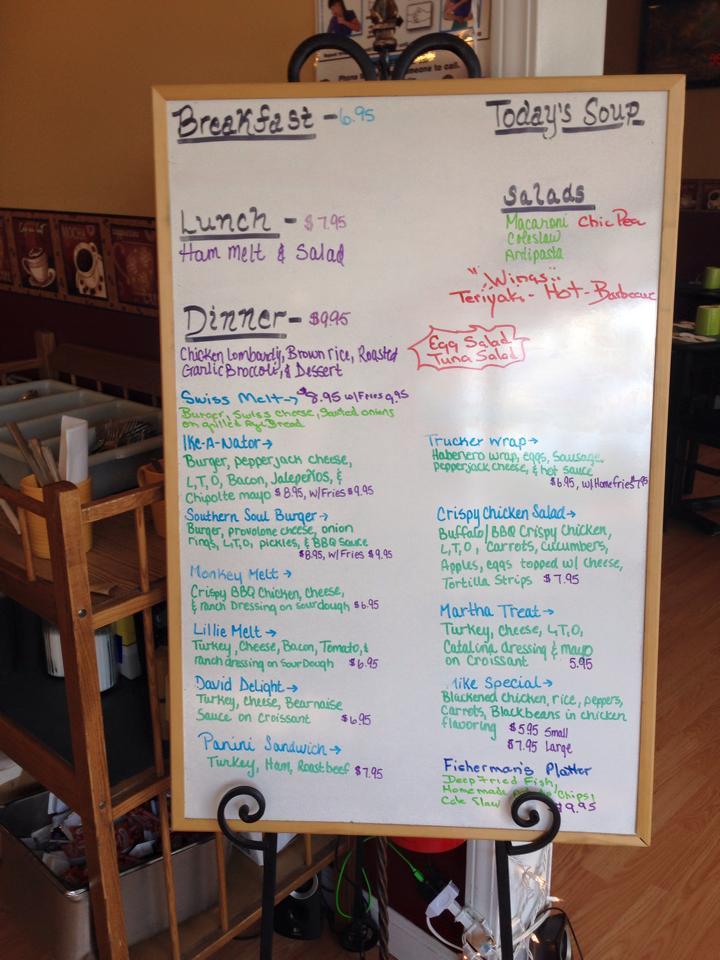 Breakfast - 6.95
Lunch - $7.95
Ham Melt & Salad
Dinner - $9.95
Chicken Lombardy, Brown rice, Roasted
Garlic Broccoli, & Dessert
Swiss Melt → $8.95 w/Fries 9.95
Burger, Swiss cheese, Sauted onions
on grilled Rye Bread
Ike-A-Nator →
Burger, pepperjack cheese,
L,T,O, Bacon, Jalepeños, &
Chipolte mayo $8.95, w/Fries $9.95
Southern Soul Burger →
Burger, provolone cheese, onion
rings, L,T,O, pickles, & BBQ Sauce
$8.95, w/ Fries $9.95
Monkey Melt →
Crispy BBQ Chicken, Cheese,
& ranch Dressing on sourdough $6.95
Lillie Melt →
Turkey, Cheese, Bacon, Tomato, &
ranch dressing on SourDough $6.95
David Delight →
Turkey, Cheese, Bearnaise
Sauce on Croissant $6.95
Panini Sandwich →
Turkey, Ham, Roast beef $7.95
Today's Soup
Salads
Macaroni Chic Pea
Coleslaw
Antipasta
"Wings"
Teriyaki - Hot - Barbecue
Egg Salad
Tuna Salad
Trucker Wrap →
Habenero wrap, eggs, Sausage,
pepperjack cheese, & hot sauce
$6.95, w/ Homefries $7.95
Crispy Chicken Salad →
Buffalo/BBQ Crispy Chicken,
L,T,O, Carrots, Cucumbers,
Apples, eggs topped w/ cheese,
Tortilla Strips $7.95
Martha Treat →
Turkey, Cheese, L,T,O,
Catalina dressing & mayo
on Croissant 5.95
Mike Special →
Blackened chicken, rice, peppers,
Carrots, Blackbeans in chicken
flavoring $5.95 Small
$7.95 Large
Fisherman's Platter
Deep Fried Fish,
Homemade Chips,
Cole Slaw $9.95